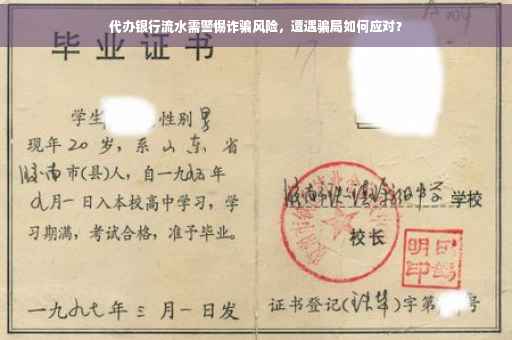 代办银行流水需警惕诈骗风险，遭遇骗局如何应对？
毕业证书
学生 性别男
现年20岁，系山东省
济南市(县)人，自一九九五年
九月一日入本校高中学习，学
习期满，考试合格，准予毕业。
一九九七年三月一日发
学校
校长
证书登记( )字第 号